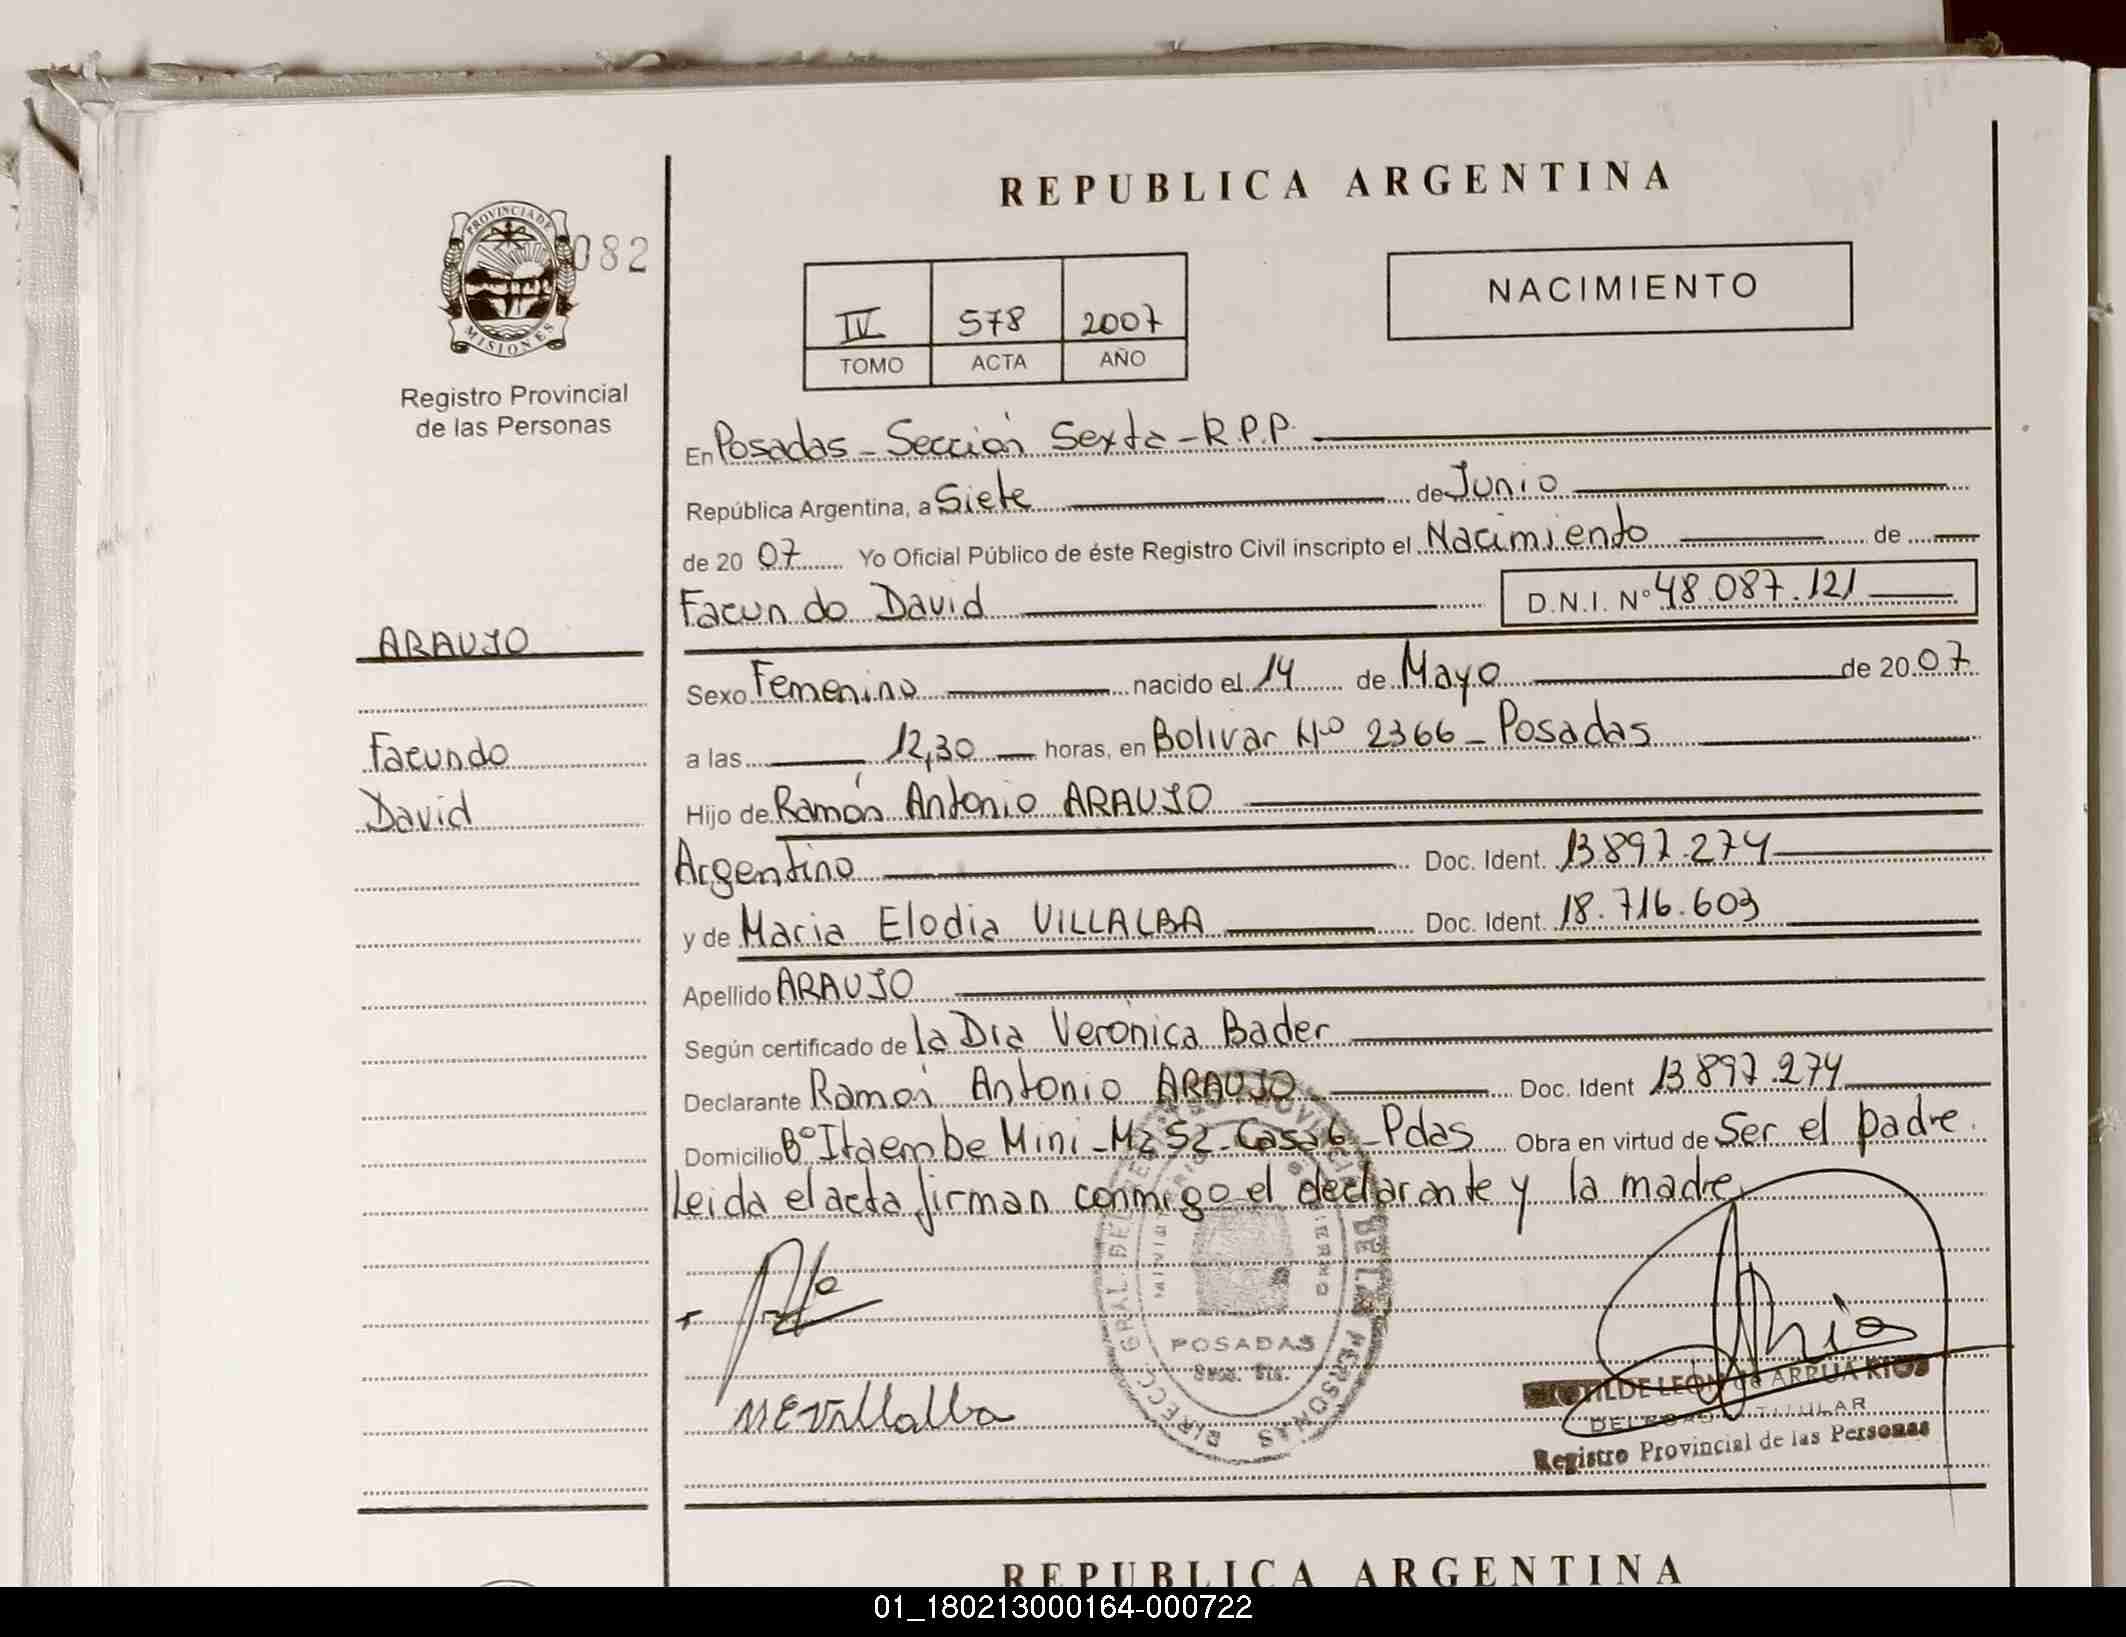 REPUBLICA ARGENTINA
PROVINCIA DE
MISIONES
082
NACIMIENTO
IV 578 2007
TOMO ACTA AÑO
Registro Provincial
de las Personas
En Posadas - Sección Sexta - R.P.P.
República Argentina, a Siete de Junio
de 20 07 Yo Oficial Público de éste Registro Civil inscripto el Nacimiento de
Facundo David D.N.I. Nº 48.087.121
ARAUJO
Sexo Femenino nacido el 14 de Mayo de 20 07
Facundo
a las 12,30 horas, en Bolivar Nº 2366 - Posadas
David
Hijo de Ramón Antonio ARAUJO
Argentino Doc. Ident. 13.897.274
y de Maria Elodia VILLALBA Doc. Ident. 18.716.603
Apellido ARAUJO
Según certificado de la Dra Verónica Bader
Declarante Ramón Antonio ARAUJO Doc. Ident 13.897.274
Domicilio Bº Itaembe Mini - Mz 52 - Casa 6 - Pdas Obra en virtud de Ser el padre.
Leida el acta firman conmigo el declarante y la madre
POSADAS
Secc. 6ta.
MEVillalba
LEON de ARRUA RIOS
TITULAR
Registro Provincial de las Personas
REPUBLICA ARGENTINA
01_180213000164-000722